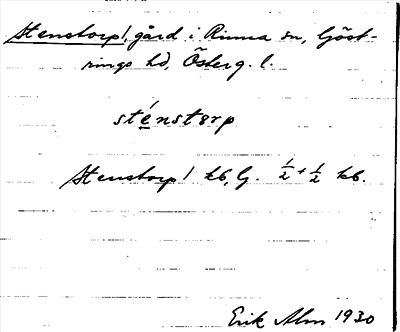 Stenstorp1, gård i Rinna sn, Göst-
rings hd, Österg. l.
sténstørp
Stenstorp1 kb, G. ½ + ½ kb.
Erik Alm 1930